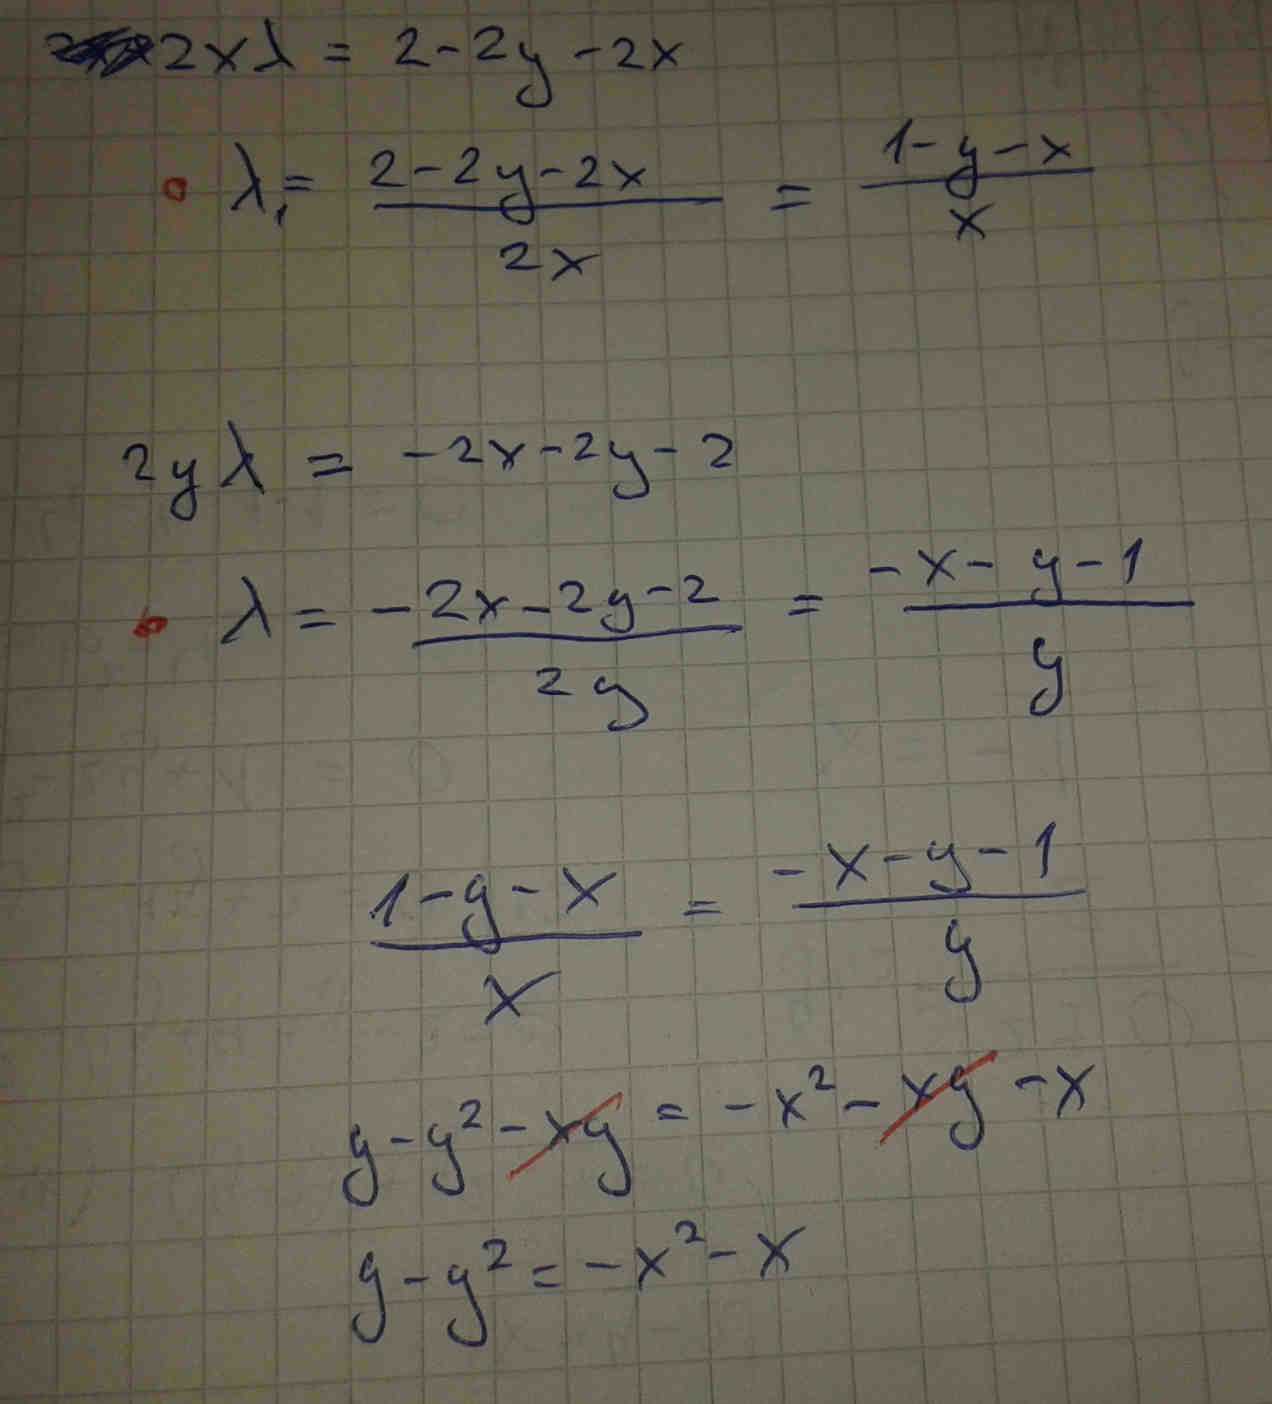 2xλ = 2-2y-2x
λ₁= (2-2y-2x)/(2x) = (1-y-x)/x
2yλ = -2x-2y-2
λ = (-2x-2y-2)/(2y) = (-x-y-1)/y
(1-y-x)/x = (-x-y-1)/y
y-y²-xy = -x²-xy-x
y-y² = -x²-x